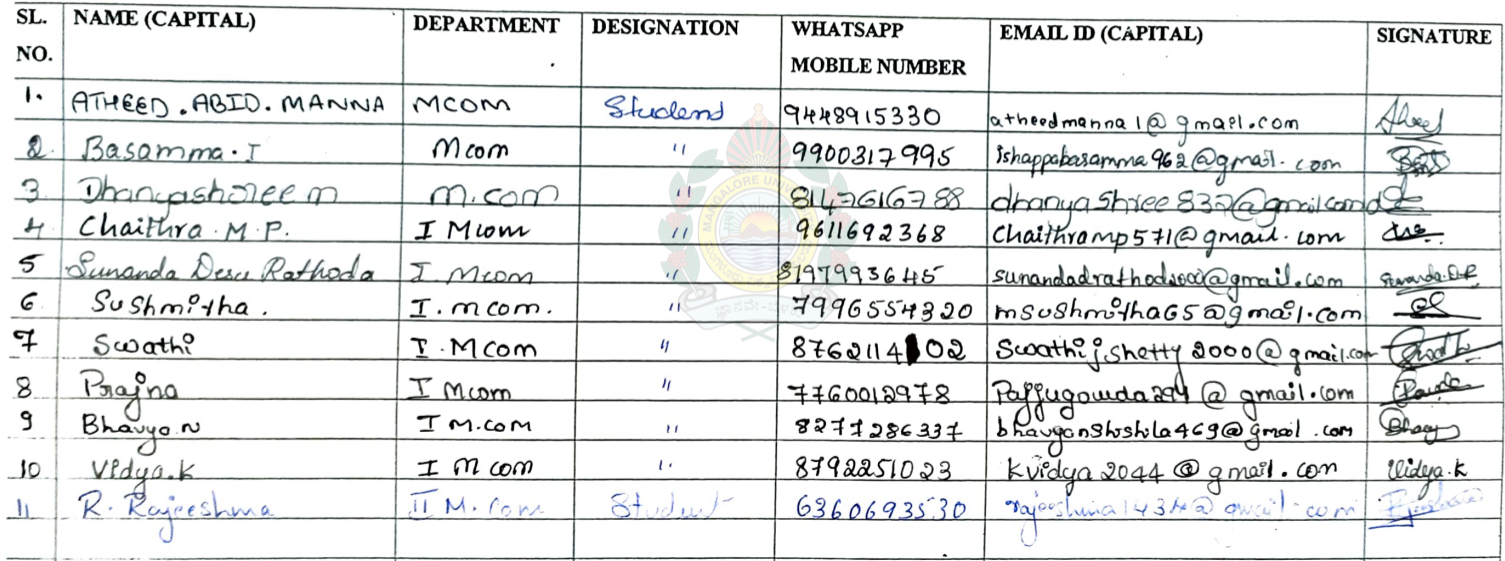 SL. NO. NAME (CAPITAL) DEPARTMENT DESIGNATION WHATSAPP MOBILE NUMBER EMAIL ID (CAPITAL) SIGNATURE
1. ATHEED . ABID . MANNA MCOM Student 9448915330 atheedmanna1@gmail.com
2. Basamma . I Mcom " 9900317995 ishappabasamma962@gmail.com
3 Dhanyashree m M.com " 8147616788 dhanyashree832@gmail.com
4 Chaithra . M . P. I Mcom " 9611692368 Chaithramp571@gmail.com
5 Sunanda Desu Rathoda I . Mcom " 8197993645 Sunanda.D.R
6 Sushmitha . I . mcom . " 7996554320 msushmitha65@gmail.com
7 Swathi I . MCom " 8762114 02 Swathijshetty2000@gmail.com
8 Prajna I Mcom " 7760012978 Pajjugowda294@gmail.com
9 Bhavya.N I M.com " 8277286337 Bhavy
10 Vidya.K I M com " 8792251023 Kvidya2044@gmail.com Vidya.K
11 R. Rajeeshma II M. Com Student 6360693530
MANGALORE